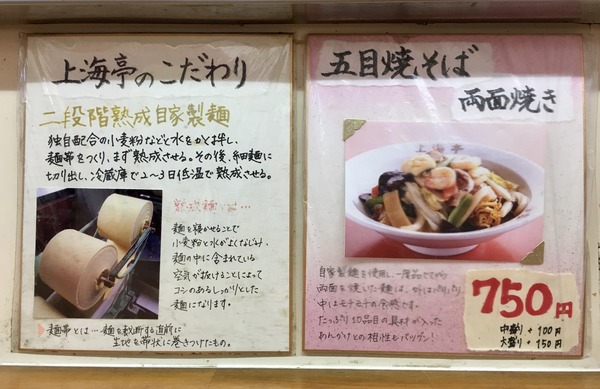 上海亭のこだわり
二段階熟成自家製麺
独自配合の小麦粉などと水をかく拌し、
麺帯をつくり、まず熟成させる。その後、細麺に
切り出し、冷蔵庫で2〜3日低温で熟成させる。
熟成麺は…
麺を寝かせることで
小麦粉と水がよくなじみ、
麺の中に含まれている
空気が抜けることによって
コシのあるしっかりとした
麺になります。
麺帯とは…麺を裁断する直前に
生地を帯状に巻きつけたもの。
五目焼そば
両面焼き
上海亭
自家製麺を使用し、一度茹でてから
両面を焼いた麺は、外はパリパリ
中はモチモチの食感です。
たっぷり10品目の具材が入った
あんかけとの相性もバツグン!
750円
中盛り + 100円
大盛り + 150円